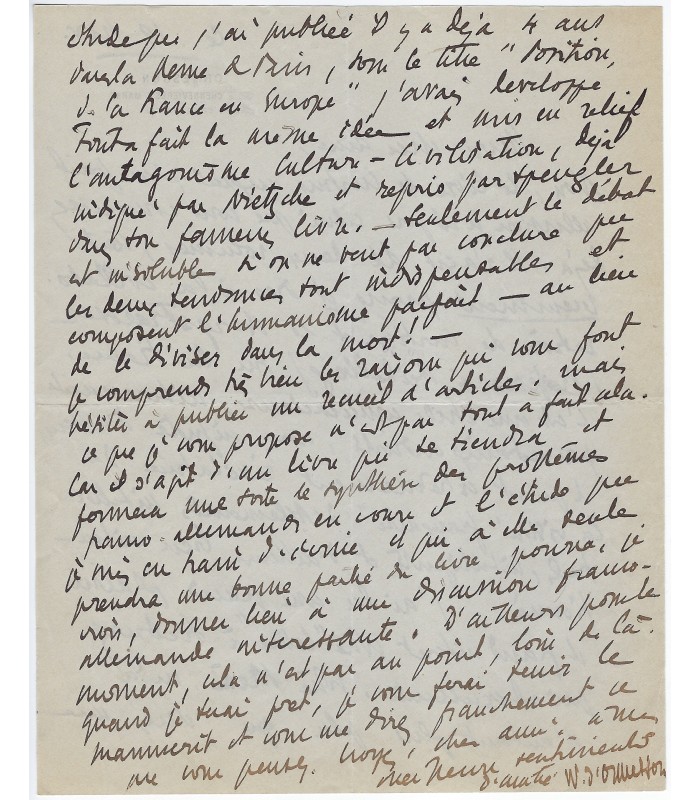 étude que j'ai publiée il y a déjà 4 ans
dans la Revue de Paris, sous le titre "Position
de la France en Europe" j'avais développé
tout à fait la même idée et mis en relief
l'antagonisme Culture – Civilisation, déjà
indiqué par Nietzche et repris par Spengler
dans son fameux livre. – Seulement le débat
est insoluble si on ne veut pas conclure que
les deux tendances sont indispensables et
composent l'humanisme parfait – au lieu
de le diviser dans la mort! –
je comprends très bien les raisons qui vous font
hésiter à publier un recueil d'articles. Mais
ce que j'vous propose n'est pas tout à fait cela.
Car il s'agit d'un livre qui se tiendra et
formera une sorte de synthèse des problèmes
franco-allemands en cours et l'étude que
je suis en train d'écrire et qui à elle seule
prendra une bonne partie du livre pourra, je
crois, donner lieu à une discussion franco-
allemande intéressante. D'ailleurs pour le
moment, cela n'est pas au point, loin de là.
quand je serai prêt, je vous ferai tenir le
manuscrit et vous me direz franchement ce
que vous pensez. Croyez, cher ami, à mes
meilleurs sentiments
d'amitié W. d'Ormesson